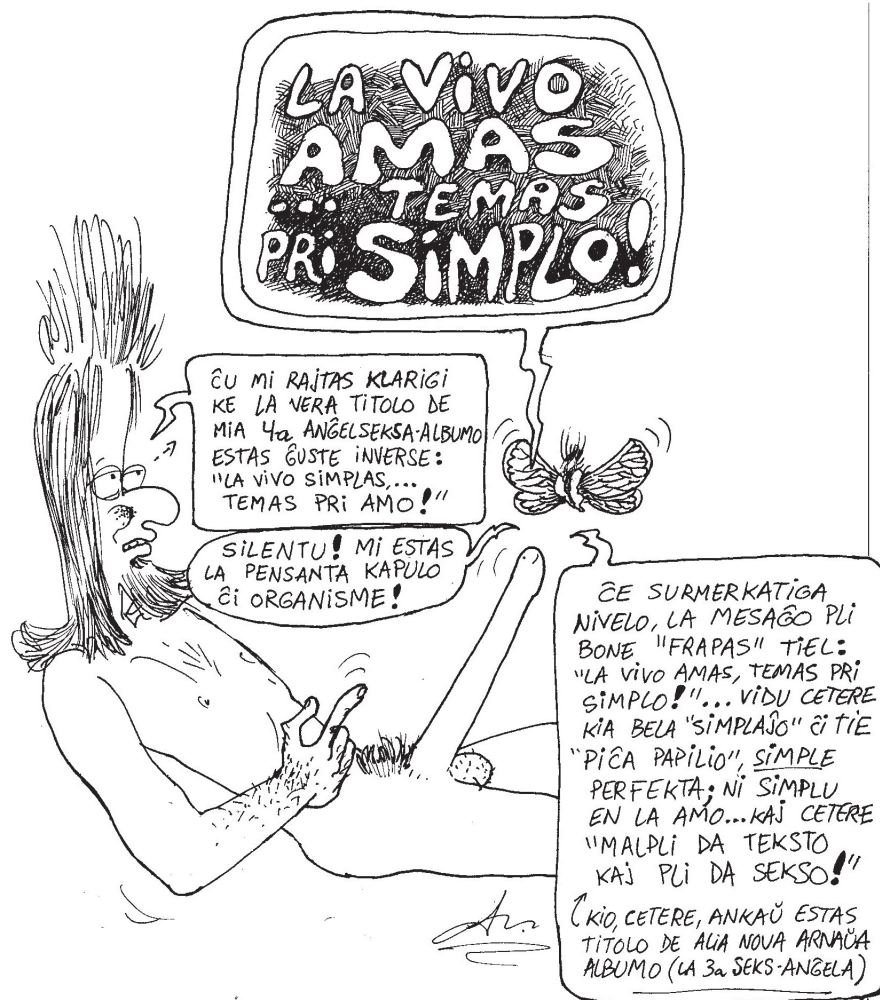 LA ViVO
AMAS
... TEMAS
PRi SiMPLO!
ĈU MI RAJTAS KLARIGI
KE LA VERA TITOLO DE
MIA 4a ANĜELSEKSA-ALBUMO
ESTAS ĜUSTE INVERSE:
"LA VIVO SIMPLAS,...
TEMAS PRI AMO!"
SILENTU! MI ESTAS
LA PENSANTA KAPULO
ĈI ORGANISME!
ĈE SURMERKATIGA
NIVELO, LA MESAĜO PLI
BONE "FRAPAS" TIEL:
"LA VIVO AMAS, TEMAS PRI
SIMPLO!"... VIDU CETERE
KIA BELA "SIMPLAĴO" ĈI TIE
"PIĈA PAPILIO", SIMPLE
PERFEKTA; NI SIMPLU
EN LA AMO...KAJ CETERE
"MALPLI DA TEKSTO
KAJ PLI DA SEKSO!"
KIO, CETERE, ANKAŬ ESTAS
TITOLO DE ALIA NOVA ARNAŬA
ALBUMO (LA 3a SEKS-ANĜELA)